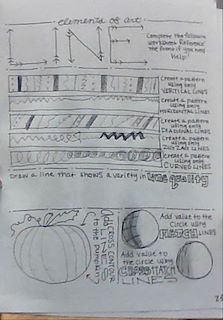 elements of art
LINE
Complete the following
worksheet. Reference
the if you need
Help!
Create a pattern
using only
VERTICAL LINES
Create a pattern
using only
HORIZONTAL LINES
Create a pattern
using only
DIAGONAL LINES
Create a pattern
using only
ZIGZAG LINES
Create a pattern
using only
CURVED LINES
Draw a line that shows a variety in line quality
Add CROSS CONTOUR
LINES
to the pumpkin
Add value to
the circle using
HATCH LINES
Add value to
the circle using
CROSSHATCH
LINES